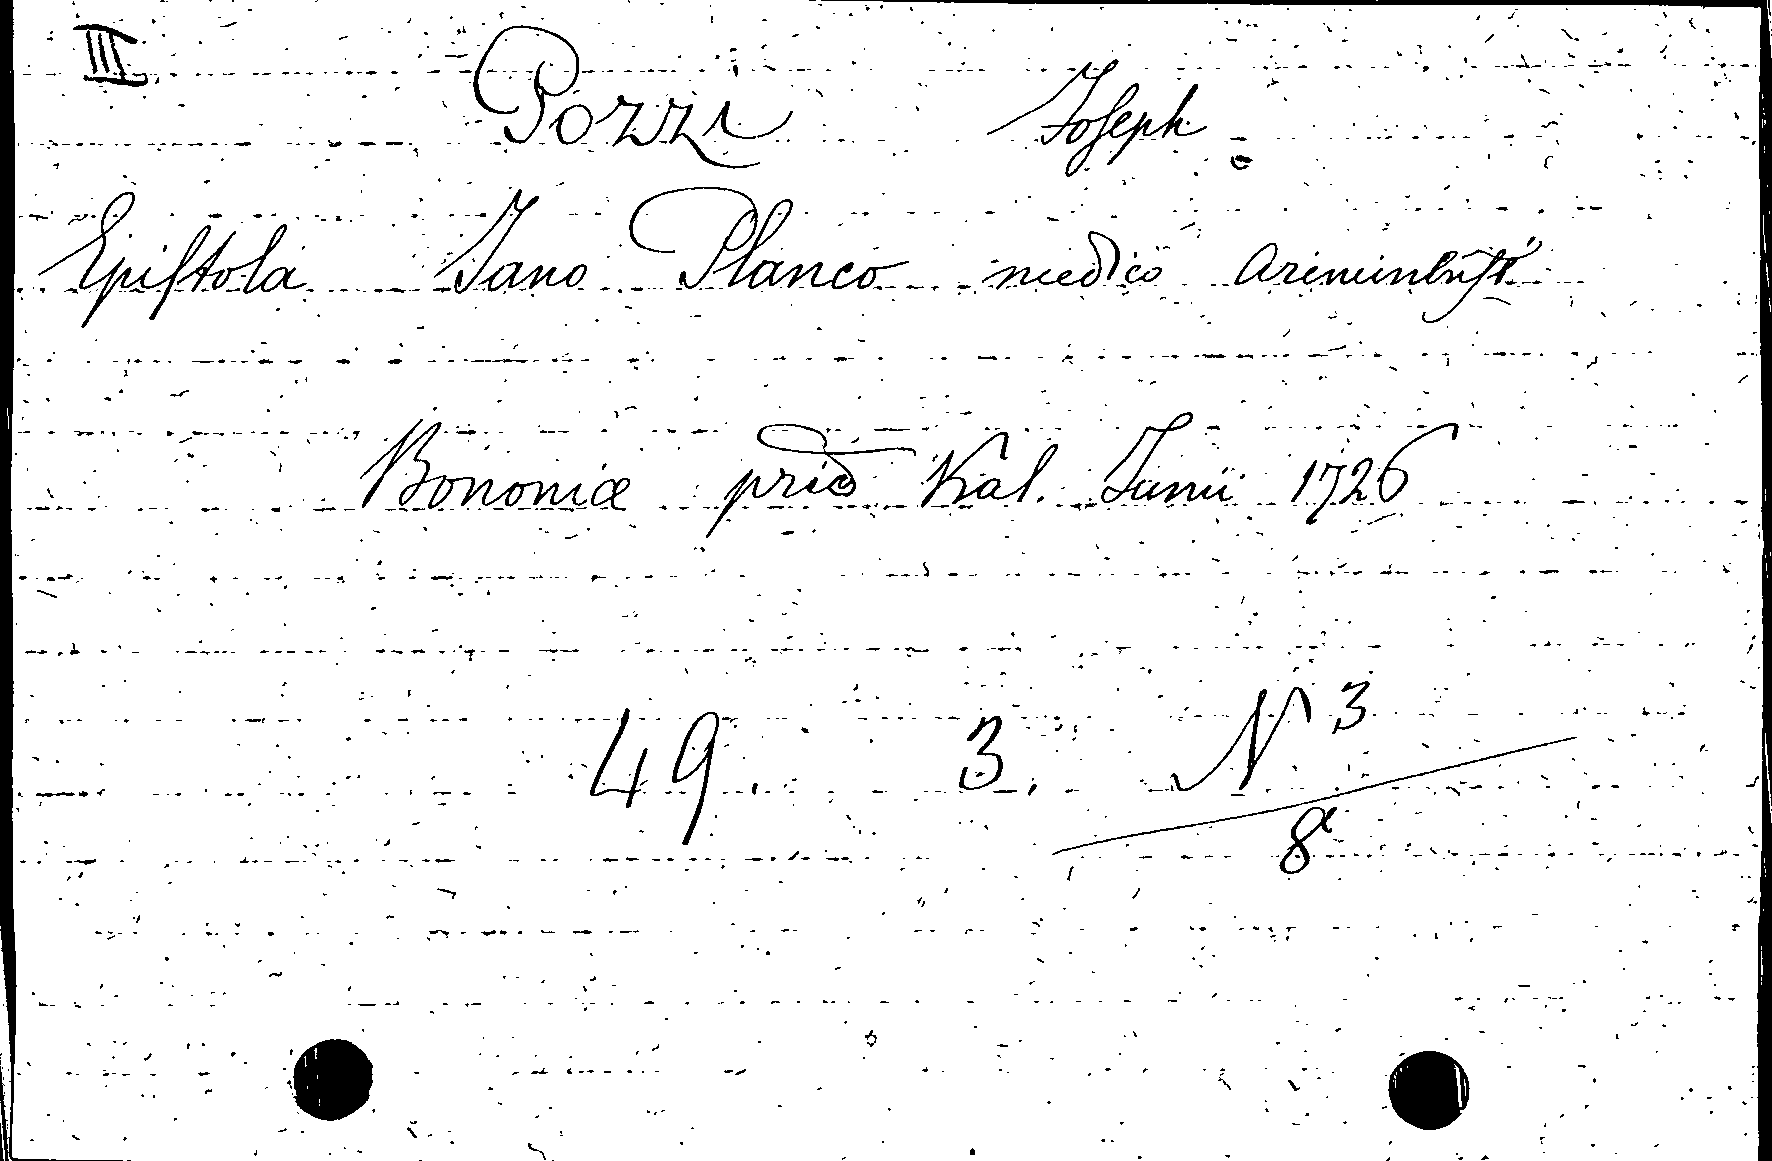 III
Pozzi Joseph
Epistola Iano Planco medico ariminensi
Bononiæ prid Kal. Iunii 1726
49. 3. N 3
8º